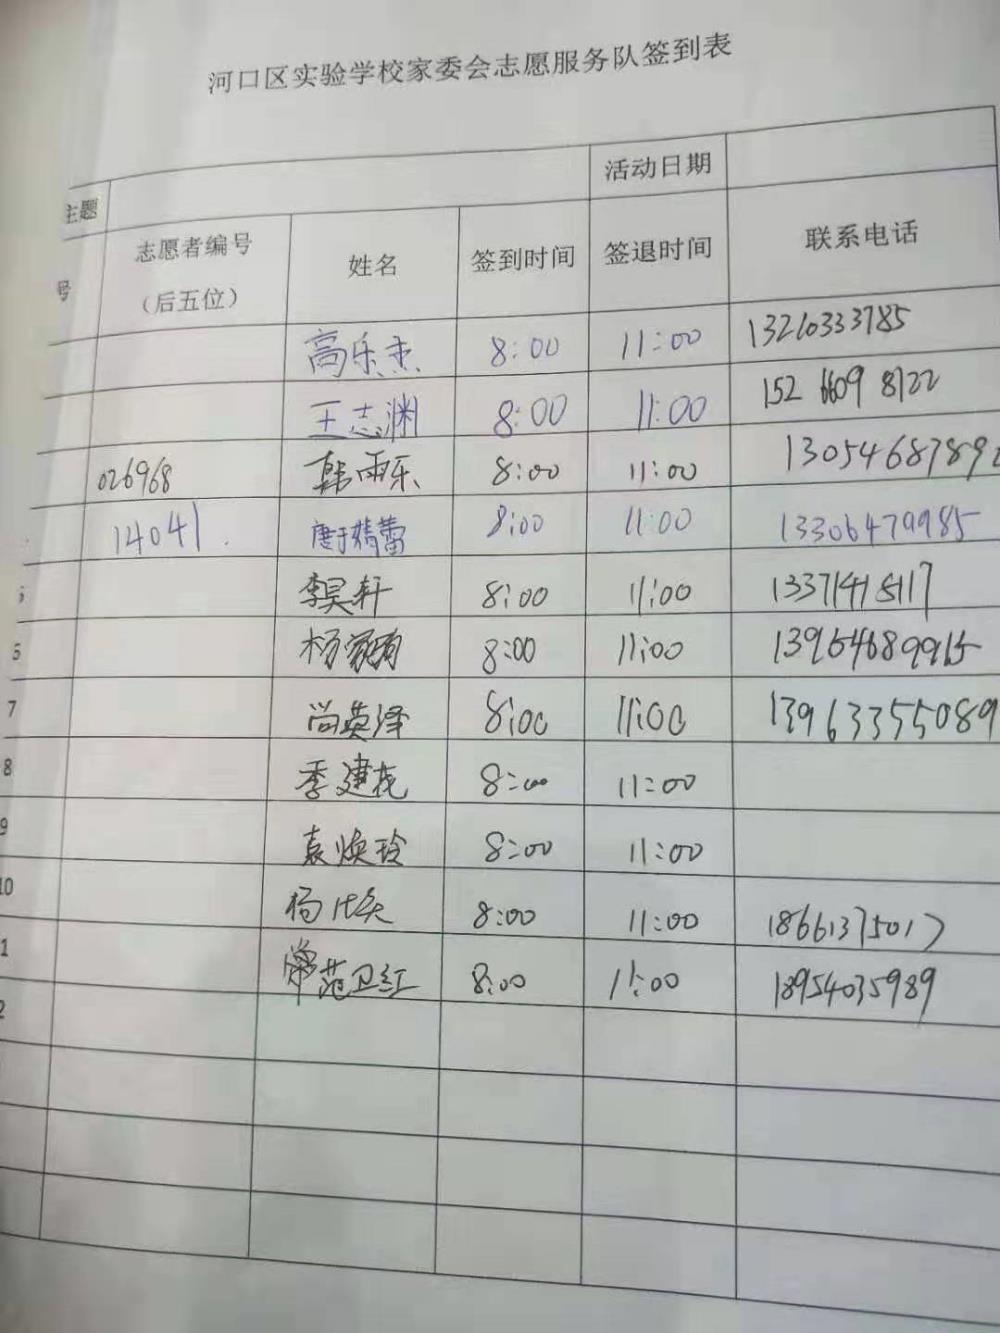 河口区实验学校家委会志愿服务队签到表
主题 活动日期
号 志愿者编号（后五位） 姓名 签到时间 签退时间 联系电话
高乐 8:00 11:00 13210333785
王志渊 8:00 11:00 152 6609 8122
026968 韩雨乐 8:00 11:00 1305468789
14041. 唐于婧蕾 8:00 11:00 13306479985
李昊轩 8:00 11:00 13371415117
6 杨家 8:00 11:00 13954689915
7 尚英泽 8:00 11:00 13963355089
8 季建花 8:00 11:00
9 袁焕玲 8:00 11:00
10 杨 8:00 11:00 18661375017
1 范卫红 8:00 11:00 18954035989
2